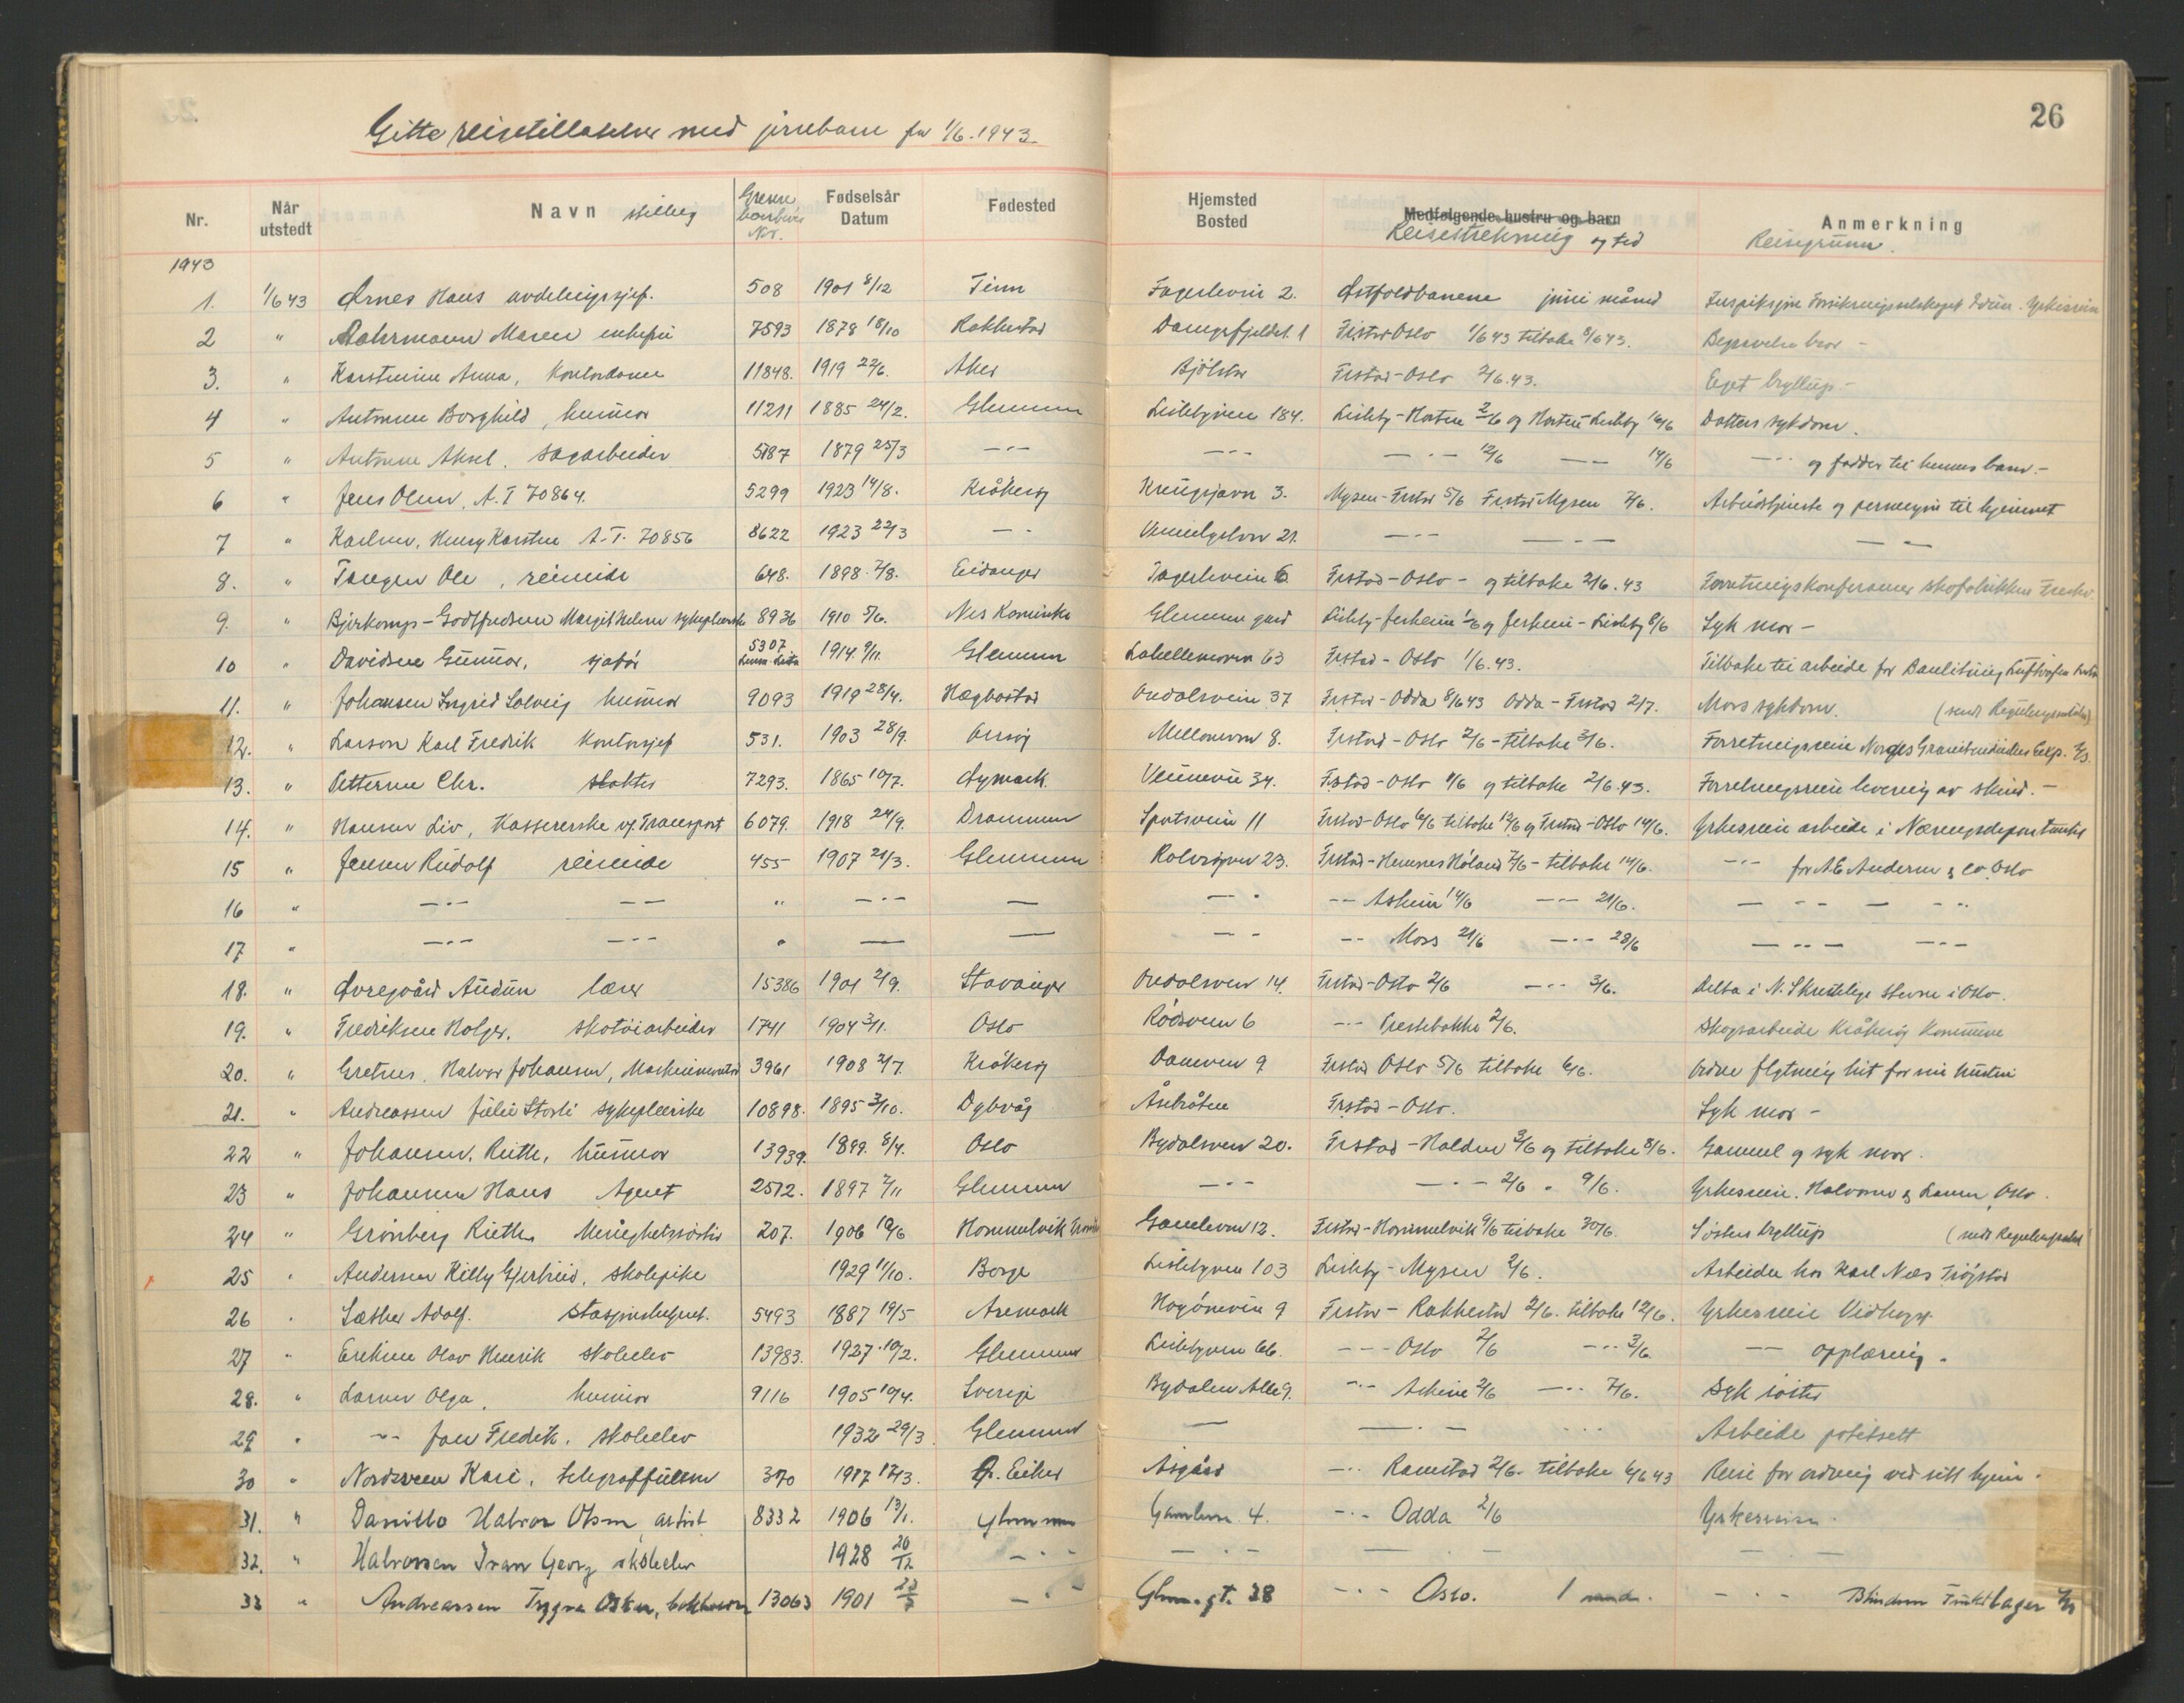 26
Gitte reisetillatelser med jernbane for 1/6. 1943.
Nr. Når utstedt Navn stilling Grense boerbevis Nr. Fødselsår Datum Fødested Hjemsted Bosted Medfølgende hustru og barn Reisestrekning og tid Anmerkning Reisegrunn.
1943
1. 1/6 43 Ørnes Hans avdelingssjef. 508 1901 8/12 Tinn Fagerliveien 2. Østfoldbanene juni måned Inspeksjon Forsikringsselskapet Idun. Yrkesreise
2 " Maren enkefru 7593 1878 18/10 Rakkestad Damyrfjeldet 1 Frstad-Oslo 1/6 43 tilbake 8/6 43. Begravelse bror -
3. " Karstensen Anna, Kontordame 11848. 1919 22/6. Aker Bjølstad Frstad-Oslo 2/6. 43. Eget bryllup. -
4 " Antonsen Borghild, husmor 11211 1885 24/2. Glemmen Lislebyveien 184. Lisleby-Horten 2/6 og Horten-Lisleby 16/6 Datters sykdom.
5 " Antonsen Aksel. sagarbeider 5187 1879 25/3 -"- -"- -"- 12/6 -- 14/6 -"- og fadder til hennes barn. -
6 " Jens Olsen, A.T 70864. 5299 1923 14/8. Kråkerøy 3. Mysen-Frstad 5/6 Frstad-Mysen 7/6. Arbeidstjeneste og permisjon til hjemmet
7 " Karlsen, Henry Karsten A.T. 70856 8622 1923 22/3 -"- 21. -"- -"- --
8. " Tangen Ole, reisende 648. 1898. 7/8. Eidanger Fagerliveien 6 Frstad-Oslo - og tilbake 2/6. 43 Forretningskonferanser skofabrikken
9. " Bjerkamp-Godtfredsen Margit Helene sykepleierske 8936 1910 5/6. Nes Romerike Glemmen gård Lisleby-Jesheim 1/6 og Jesheim-Lisleby 8/6 Syk mor -
10 " Davidsen Gunnar, sjafør 5307 1914. 9/11. Glemmen Labellemoveien 63 Frstad-Oslo 1/6. 43. Tilbake til arbeide for Bauleitung Luftwaffe
11. " Johansen Ingrid Solveig husmor 9093 1919 28/4. Hægbostad Ordalsveien 37 Frstad-Odda 8/6 43 Odda-Frstad 2/7. Mors sykdom. (sendt Reguleringsmyndighet)
12. " Larson Karl Fredrik Kontorsjef 531. 1903 28/9. Onsøy Mellomveien 8. Frstad-Oslo 2/6-tilbake 3/6. Forretningsreise Norges Granitindustries Eksp. A/S.
13. " Pettersen Chr. slakter 7293. 1865 10/7. Øymark Veumveien 34. Frstad-Oslo 1/6 og tilbake 2/6. 43. Forretningsreise levering av skind. -
14. " Hansen Liv, Kassererske v/ Transport 6079. 1918 24/9. Drammen Sportsveien 11 Frstad-Oslo 6/6 tilbake 12/6 og Frstad-Oslo 14/6. Yrkesreise arbeide i Næringsdepartementet
15 " Jensen Rudolf reisende 455 1907 21/3. Glemmen Rolvsøyveien 23. Frstad-Hemnes Høland 7/6-tilbake 14/6. -"- for A.E. Andersen & Co. Oslo
16 " -"- -- " -"- -- -"- -- Askim 14/6 --- 21/6. -"-
17 " -"- -"- " -- -- -"- -- Moss 21/6 -"- 28/6 -"- -"-
18. " Øvregård Audun lærer 15386 1901 2/9. Stavanger Ordalsveien 14. Frstad-Oslo 2/6 -"- 3/6. Delta i N. Skrivelige stevne i Oslo.
19. " Fredriksen Holger. skotøiarbeider 1741 1904 3/11. Oslo Rødsveien 6 -"- Prestebakke 2/6. Skogsarbeide Kråkerøy Kommune
20. " Gretnes, Halvor Johansen, Maskinmontør 3961 1908 2/7. Kråkerøy Damveien 9 Frstad Oslo 5/6 tilbake 6/6. Ordne flytning hit for min hustru
21. " Andreassen Julie Storli sykepleierske 10898. 1895 3/10. Dybvåg Åsebråten Frstad-Oslo. Syk mor -
22 " Johansen. Ruth, husmor 13939. 1899. 8/4. Oslo Bydalsveien 20. Frstad-Halden 3/6 og tilbake 8/6. Gammel og syk mor.
23 " Johansen Hans Agent 2512. 1897 7/11 Glemmen -"- -"- 2/6 " 9/6. Yrkesreise. Halvorsen & Larsen, Oslo.
24 " Grønberg Ruth Menighetssøster 207. 1906 10/6 Hommelvik Gamleveien 12. Frstad-Hommelvik 9/6 tilbake 30/6. Søsters bryllup (sendt Reguleringsmynd)
25 " Andersen Killy Gjertrud, skolepike 1929 11/10. Borge Lislebyveien 103 Lisleby-Mysen 2/6. Arbeide hos Karl Næs Trøgstad
26 " Sæther Adolf. stasjonsbetjent. 5493 1887 19/5 Aremark Høgåsveien 9 Frstad-Rakkestad 2/6. tilbake 12/6. Yrkesreise Vidhogst
27 " Eriksen Olav Henrik skoleelev 13983. 1927. 10/2. Glemmen Lislebyveien 66. --- Oslo 2/6 -"- 3/6. -- opplæring.
28. " Larsen Olga, husmor 9116 1905 10/4. Sverige Bydalen Alle 9. -"- Askim 2/6 -"- 7/6. Syk søster
29 " -"- Jan Fredrik. skoleelev 1932 29/3. Glemmen -- -"- "" Arbeide
30 " Nordsveen Kari, telegraffullm 370 1917 12/3. Ø. Eiker Åsgård -"- Ramstad 2/6. tilbake 6/6 43 Reise for ordning ved sitt hjem.
31. " Danillo Halvor Olsen artist 8332 1906 13/1. Glemmen Gamleveien 4. -"- Odda 2/6 Yrkesreise.
32. " Halvorsen Ivan Georg skoleelev 1928 20/12 -"- -"- -"- -"-
33 " Andreassen Trygve Oskar, bokholder 13063 1901 23/5 -"- Glem.gt. 38 -"- Oslo. 1 mnd. -"- Blindern Fruktlager A/S